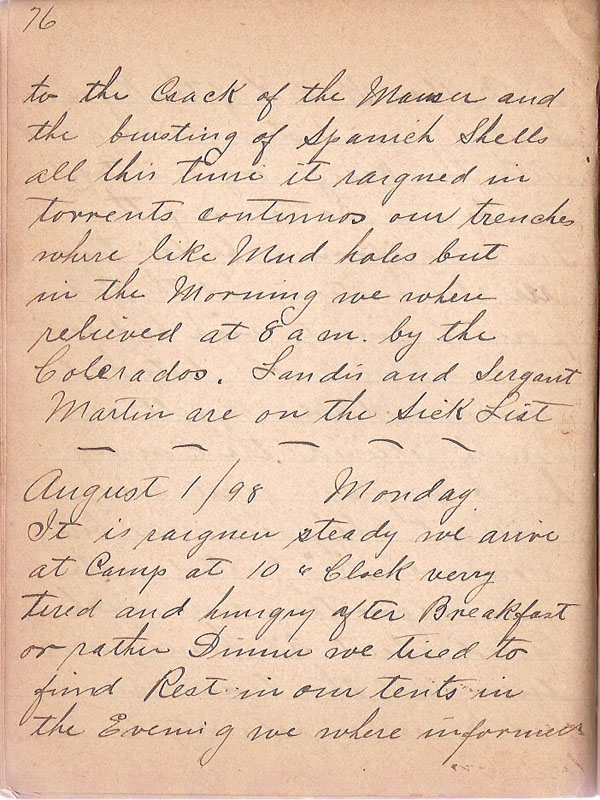 76
to the Crack of the Mauser and
the bursting of Spanich Shells
all this time it raigned in
torrents continuos our trenches
where like Mud holes but
in the Morning we where
relieved at 8 a m. by the
Colerados. Landis and Sergant
Martin are on the Sick List
August 1/98 Monday
It is raignen steady we arive
at Camp at 10 " Clock verry
tired and hungry after Breakfast
or rather Dinner we tried to
find Rest in our tents in
the Evening we where informed